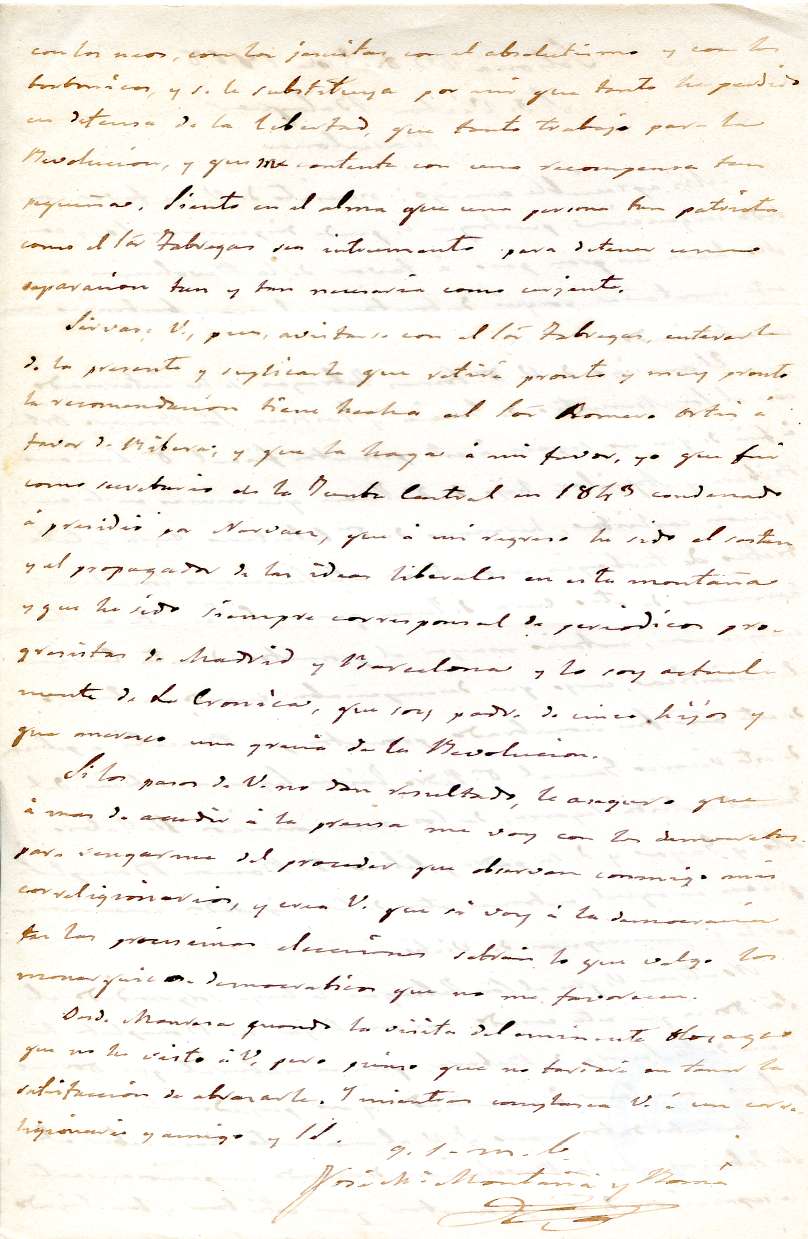 con los neos, con los jesuitas, con el absolutismo y con los
borbonicos, y se le substituya por mi que tanto he perdido
en defensa de la libertad, que tanto trabajo para la
Revolucion, y que me contente con una recompensa tan
pequeña. Siento en el alma que una persona tan patriota
como el Sór Fabregas sea intrumento para detener una
separacion tan y tan necesaria como urjente.
Sirvase V., pues, avistarse con el Sór Fabregas, enterarle
de la presente y suplicarle que retire pronto y muy pronto
la recomendacion tiene hecha al Sór Romero Ortiz á
favor de Ribera; y que la haga á mi favor, yo que fui
como secretario de la Junta Central en 1843 condenado
á presidio por Narvaez, que á mi regreso he sido el sosten
y el propagador de las ideas liberales en esta montaña
y que he sido siempre corresponsal de periodicos pro-
gresistas de Madrid y Barcelona y lo soy actual
mente de La Cronica, que soy padre de cinco hijos y
que merezco una gracia de la Revolucion.
Si los pasos de V. no dan resultado, le aseguro que
á mas de acudir á la prensa me voy con los democratas
para vengarme del proceder que observan conmigo mis
correligionarios, y crea V. que si voy á la democracia
en las procsimas elecciones sabrán lo que valgo los
monarquicos democraticos que no me favorecen.
Desde Manresa quando la visita del eminente Olozaga
que no he visto á V, pero pienso que no tardaré en tener la
satisfacción de abrazarle. Y mientras complazca V. á un corre-
ligionario y amigo y S.S.
q. s. m. b.
José Mª Montañá y Romá